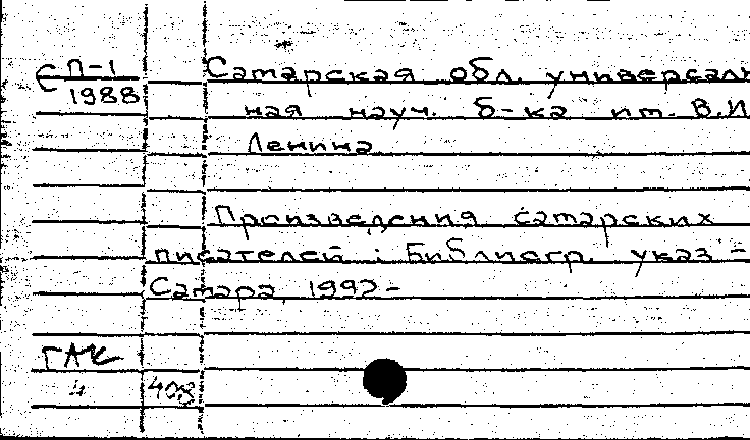 С П-1
1988
Самарская обл. универсаль
ная науч. б-ка им. В.И
Ленина
Произведения самарских
писателей : Библиогр. указ -
Самара, 1992-
ГАК
4 408